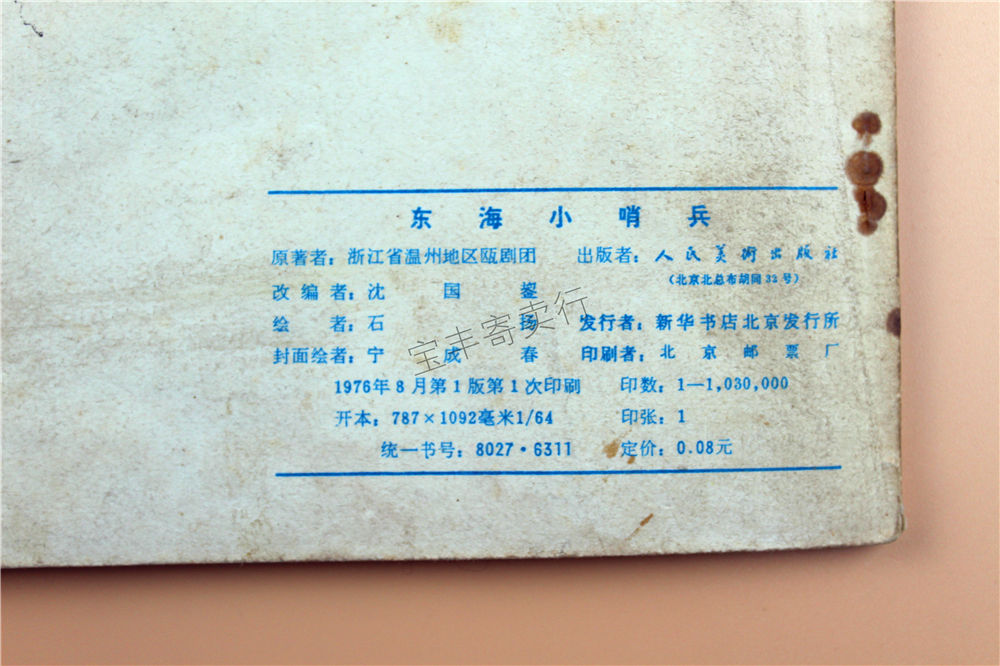 东海小哨兵
原著者：浙江省温州地区瓯剧团 出版者：人民美术出版社
（北京北总布胡同32号）
改编者：沈国鋆
绘者：石扬 发行者：新华书店北京发行所
封面绘者：宁成春 印刷者：北京邮票厂
1976年8月第1版第1次印刷 印数：1—1,030,000
开本：787×1092毫米1/64 印张：1
统一书号：8027·6311 定价：0.08元
宝丰寄卖行